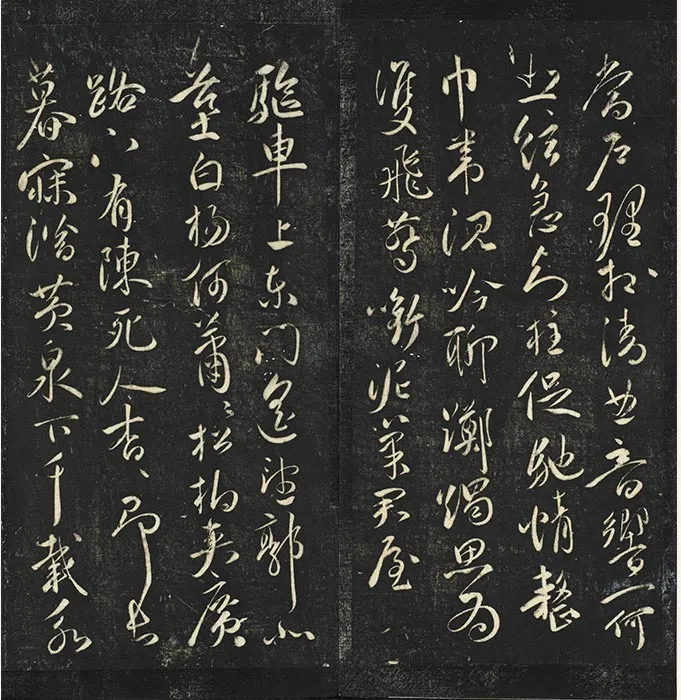 當戶理清曲音響一何
悲絃急知柱促馳情整
巾帶沉吟聊躑躅思為
雙飛燕銜泥巢君屋
驅車上東門遙望郭北
墓白楊何蕭〻松柏夾廣
路下有陳死人杳〻即長
暮寐潛黃泉下千載永